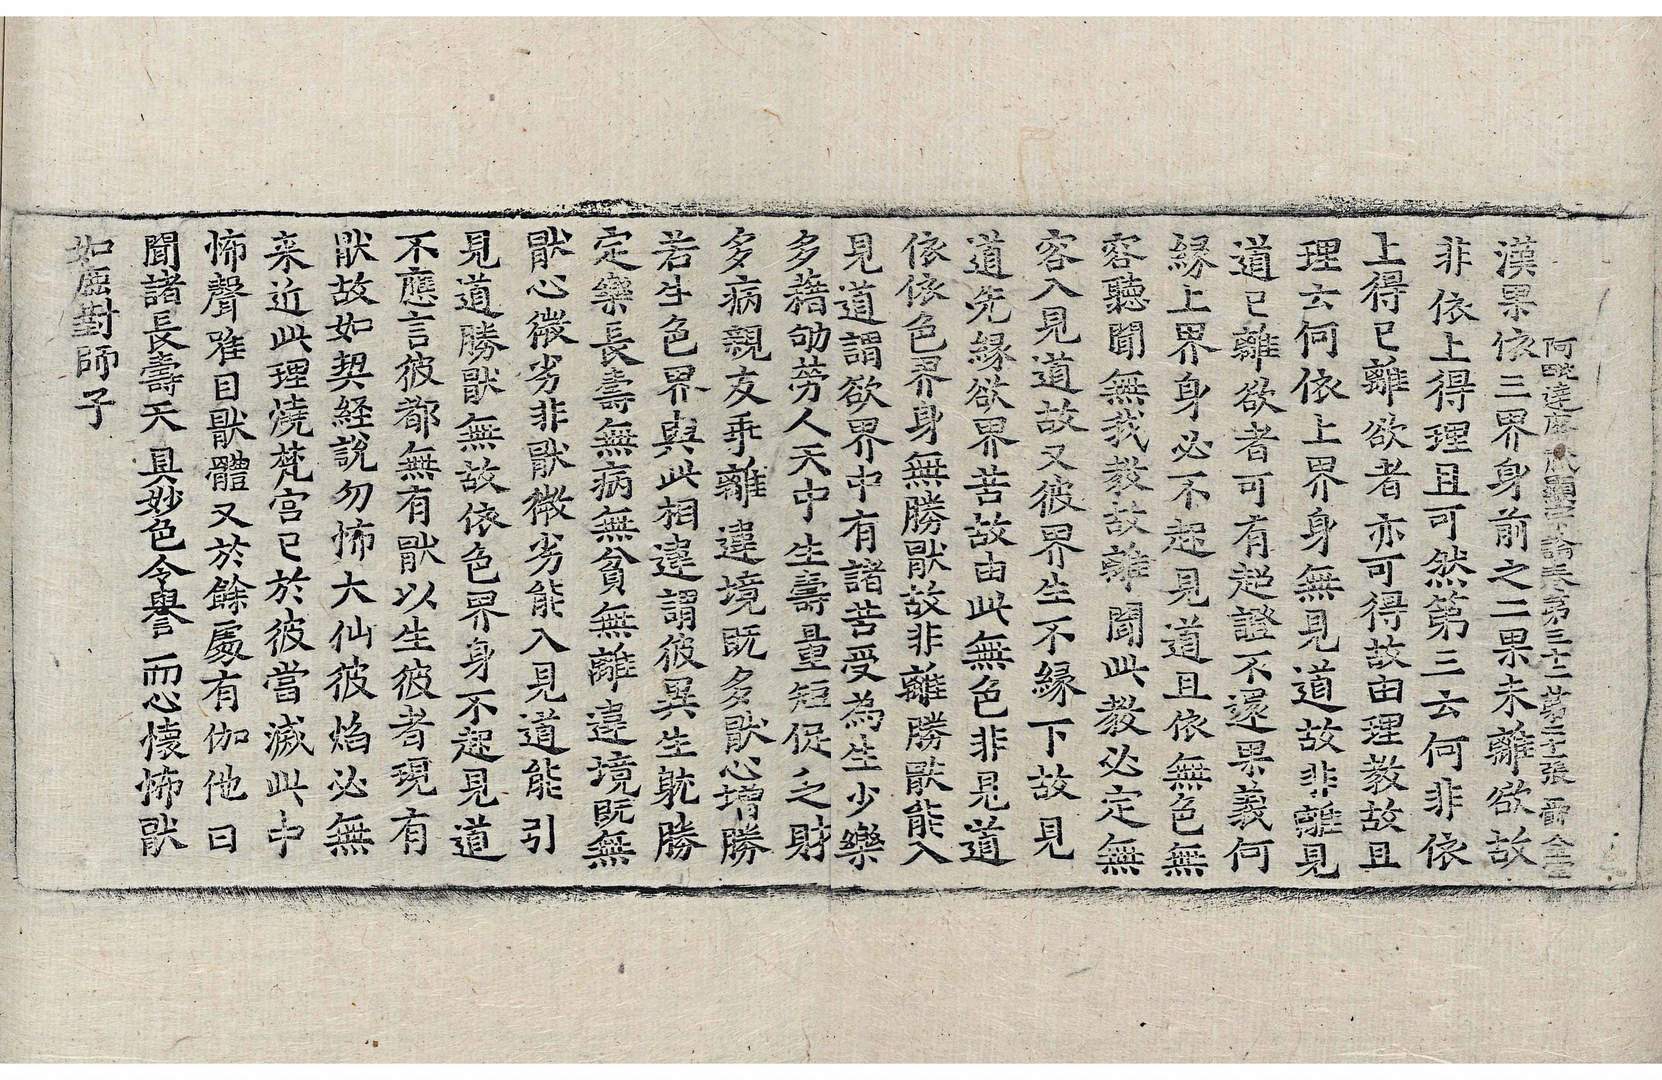 阿毗達磨藏顯宗論卷第三十二 第二十張
漢果依三界身前之二果未離欲故
非依上得理且可然第三云何非依
上得已離欲者亦可得故由理教故且
理云何依上界身無見道故非離見
道已離欲者可有起證不還果義何
緣上界身必不起見道且依無色無
容聽聞無我教故離聞此教必定無
容入見道故又彼界生不緣下故見
道先緣欲界苦故由此無色非見道
依依色界身無勝猒故非離勝猒能入
見道謂欲界中有諸苦受為生少樂
多藉劬勞人天中生壽量短促乏財
多病親友乖離違境既多猒心增勝
若生色界與此相違謂彼異生躭勝
定樂長壽無病無貧無離違境既無
猒心微劣非猒微劣能入見道能引
見道勝猒無故依色界身不起見道
不應言彼都無有猒以生彼者現有
猒故如契経說勿怖大仙彼焰必無
来近此理燒梵宫已於彼當滅此中
怖聲唯目猒體又於餘處有伽他曰
聞諸長壽天 具妙色令譽 而心懐怖猒
如鹿對師子